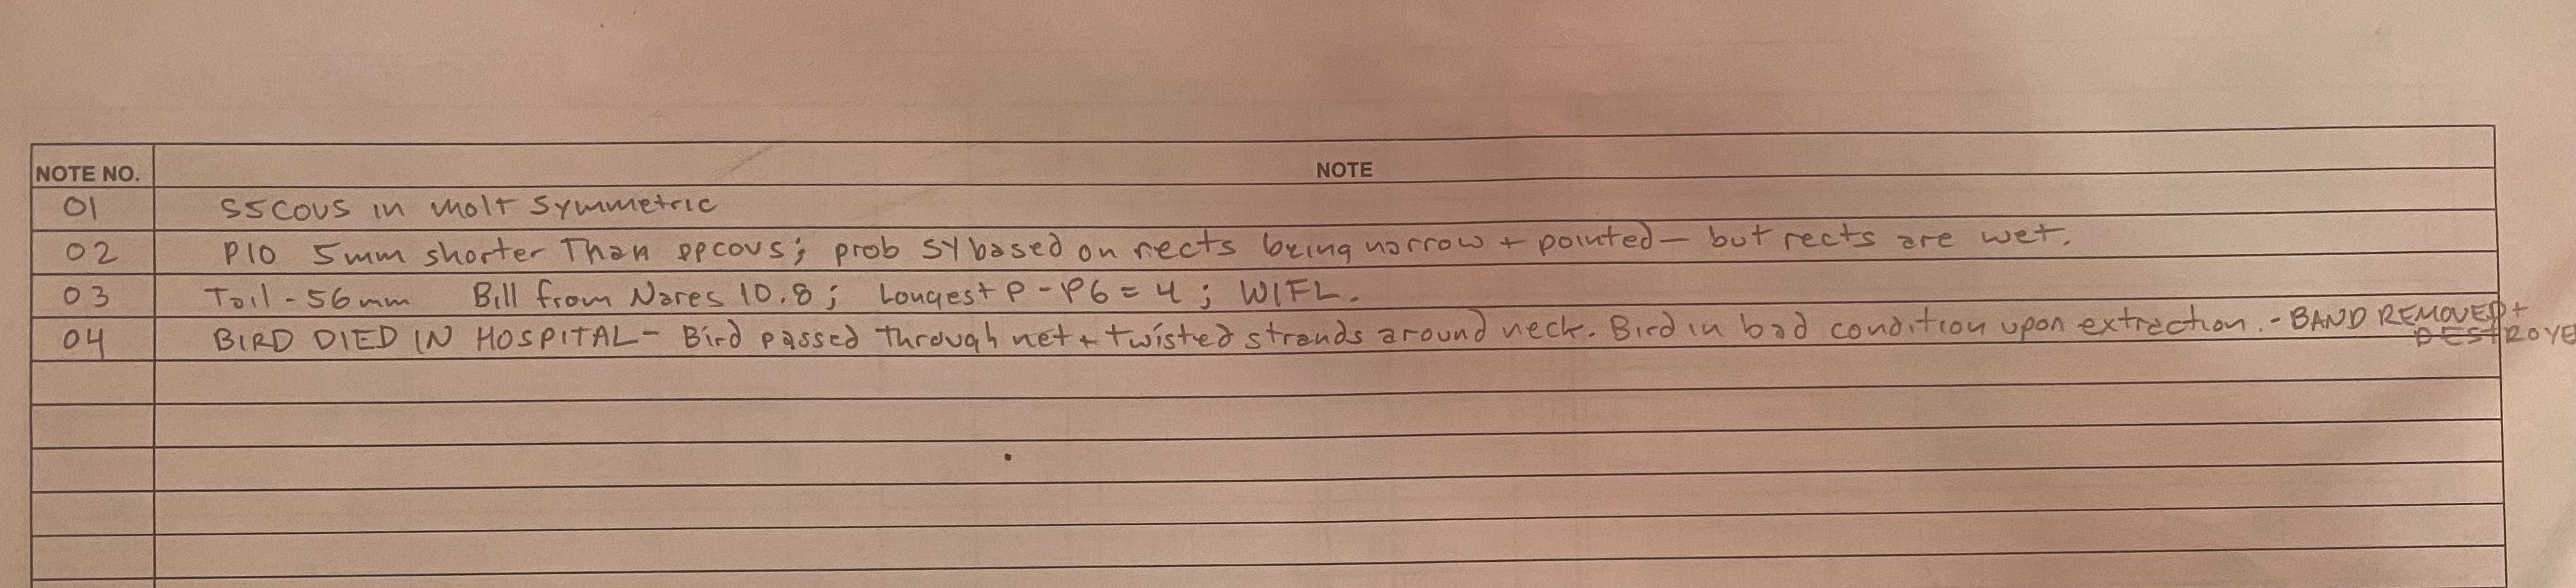 NOTE NO. NOTE
01 SSCOVS in molt symmetric
02 P10 5mm shorter Than ppcovs; prob SY based on rects being narrow + pointed — but rects are wet.
03 Tail - 56mm Bill from Nares 10.8; Longest P - P6 = 4; WIFL.
04 BIRD DIED IN HOSPITAL - Bird passed through net + twisted strands around neck. Bird in bad condition upon extraction. - BAND REMOVED +
DESTROYE